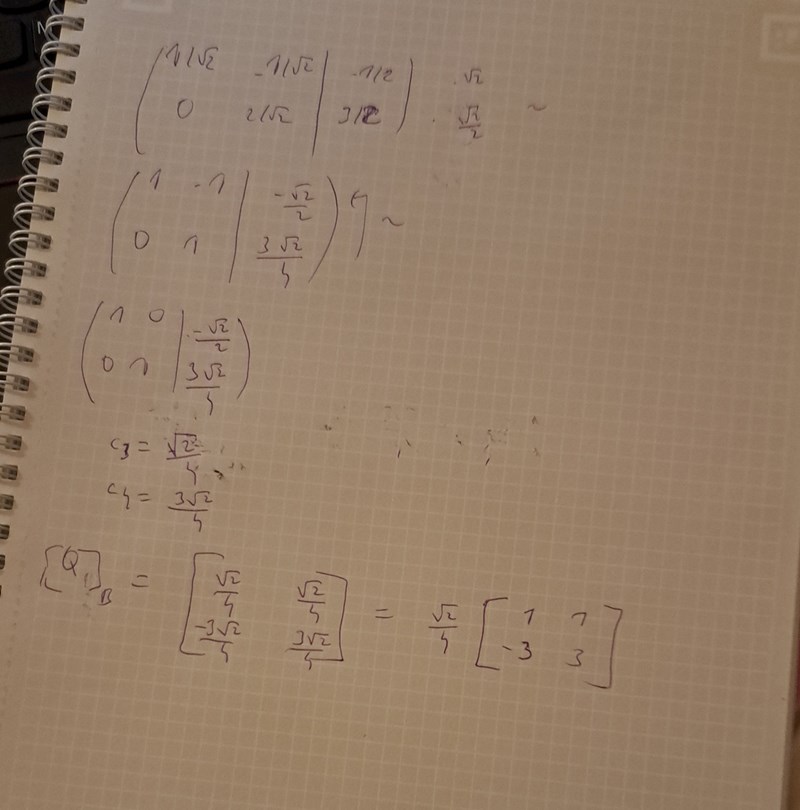 ( 1/√2 -1/√2 | -1/2 ) · √2
( 0 2/√2 | 3/2 ) · √2/2 ~
( 1 -1 | -√2/2 )
( 0 1 | 3√2/4 ) ~
( 1 0 | -√2/2 )
( 0 1 | 3√2/4 )
c3 = √2/4
c4 = 3√2/4
[Q1]B = [ √2/4 √2/4 ; -3√2/4 3√2/4 ] = √2/4 [ 1 1 ; -3 3 ]